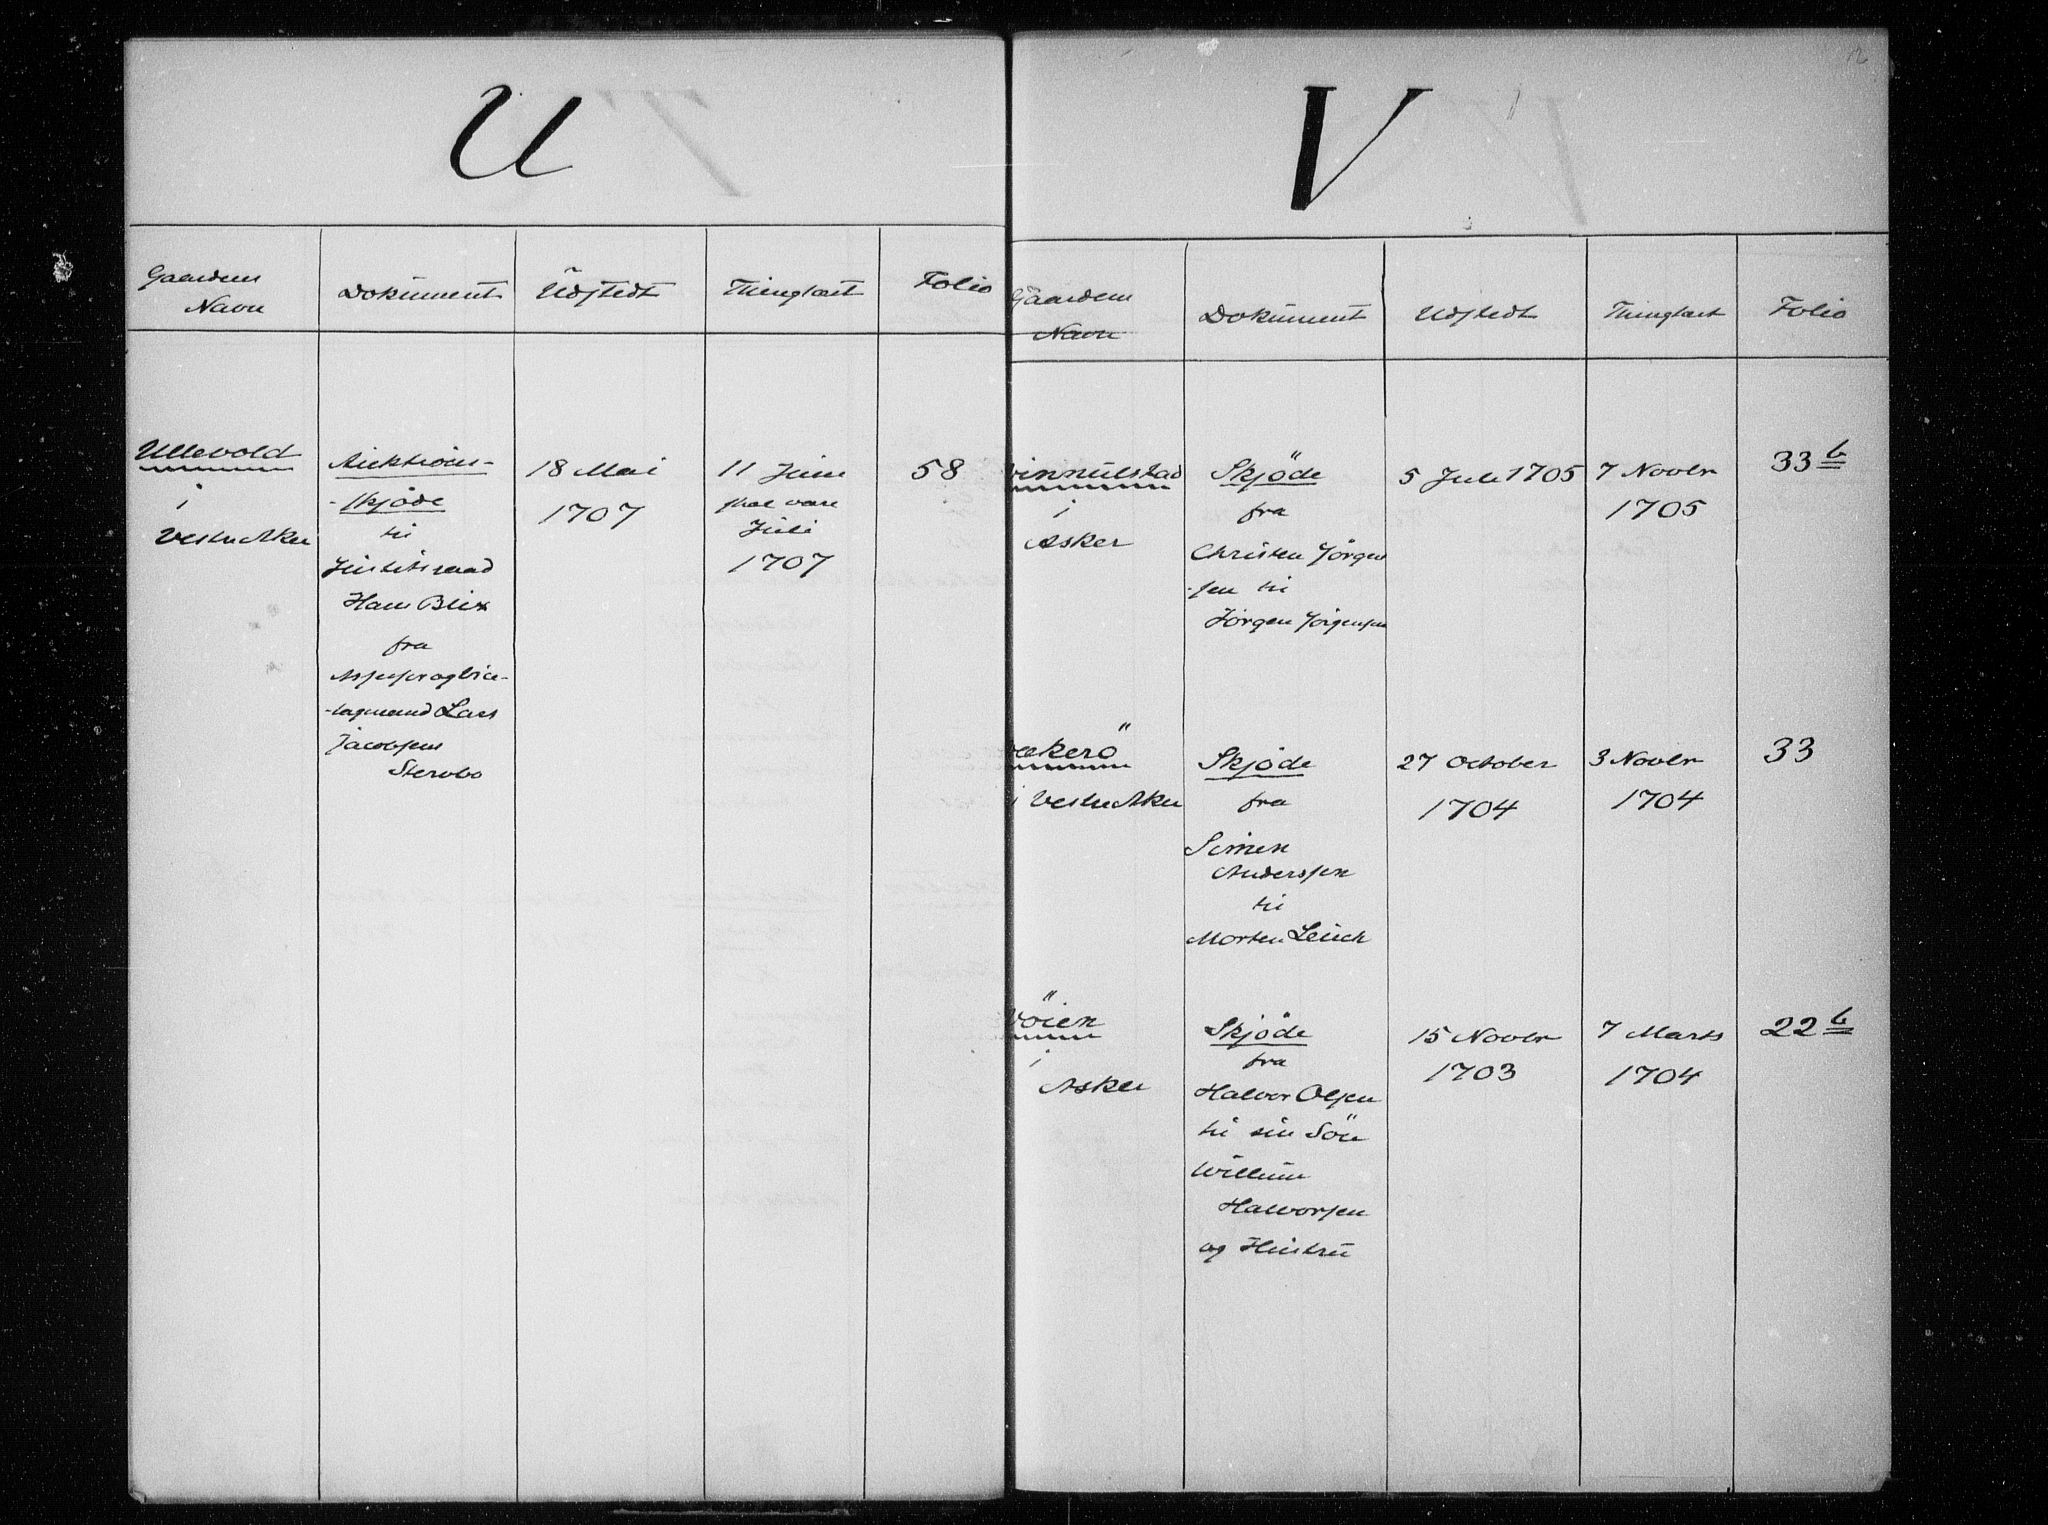 U
Gaardens
Navn
Dokument
Udstedt
Thinglæst
Folio
Ullevold
i
Vestre Aker
Auktions-
-skjöde
til
Justitsraad
Hans Blix
fra
-tagmand Lars
Jacobsens
Sterobo
18 Mai
1707
11 Juni
skal være
Juli
1707
58
V
12
Gaardens
Navn
Dokument
Udstedt
Thinglæst
Folio
Vinnulstad
i
Asker
Skjöde
fra
Christen Jörgen
-sen til
Jörgen Jörgensen
5 Juli 1705
7 Novbr
1705
33 b
Vækerö
i Vestre Aker
Skjöde
fra
Simen
Anderssen
til
Morten Leuch
27 October
1704
3 Novbr
1704
33
Vöien
i
Asker
Skjöde
fra
Halvor Olsen
til sin Sön
Willum
Halvorsen
og Hustru
15 Novbr
1703
7 Marts
1704
22 b